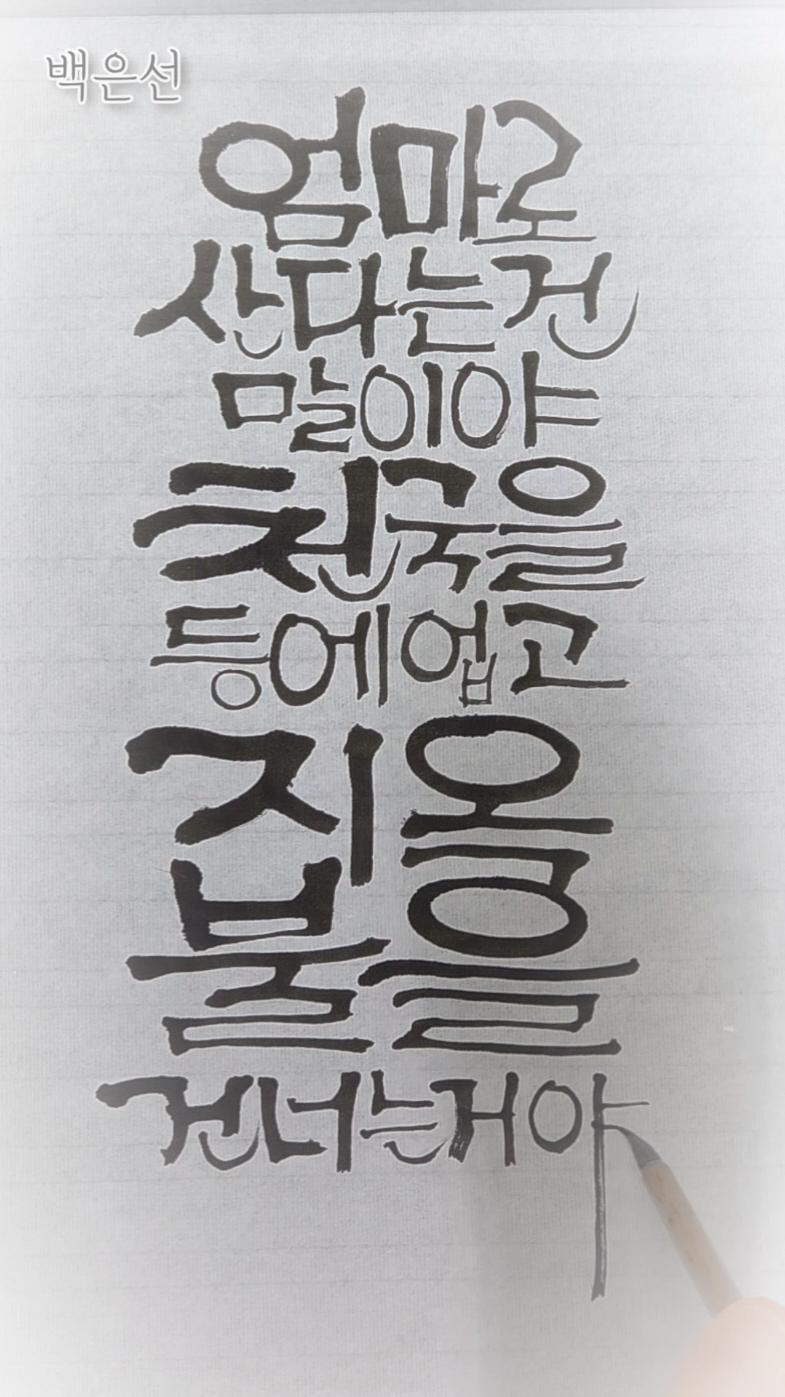 백은선
엄마로
산다는건
말이야
천국을
등에업고
지옥
불을
건너는거야